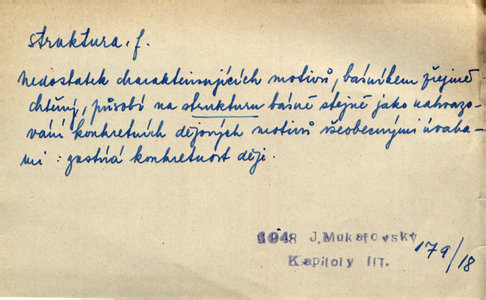 struktura, f.
Nedostatek charakterisujících motivů, básníkem zřejmě
chtěný, působí na strukturu básně stejně jako nahrazo-
vání konkretních dějových motivů všeobecnými úvaha-
mi : zastírá konkretnost děje.
1948 J.Mukařovský
Kapitoly III.
179/18